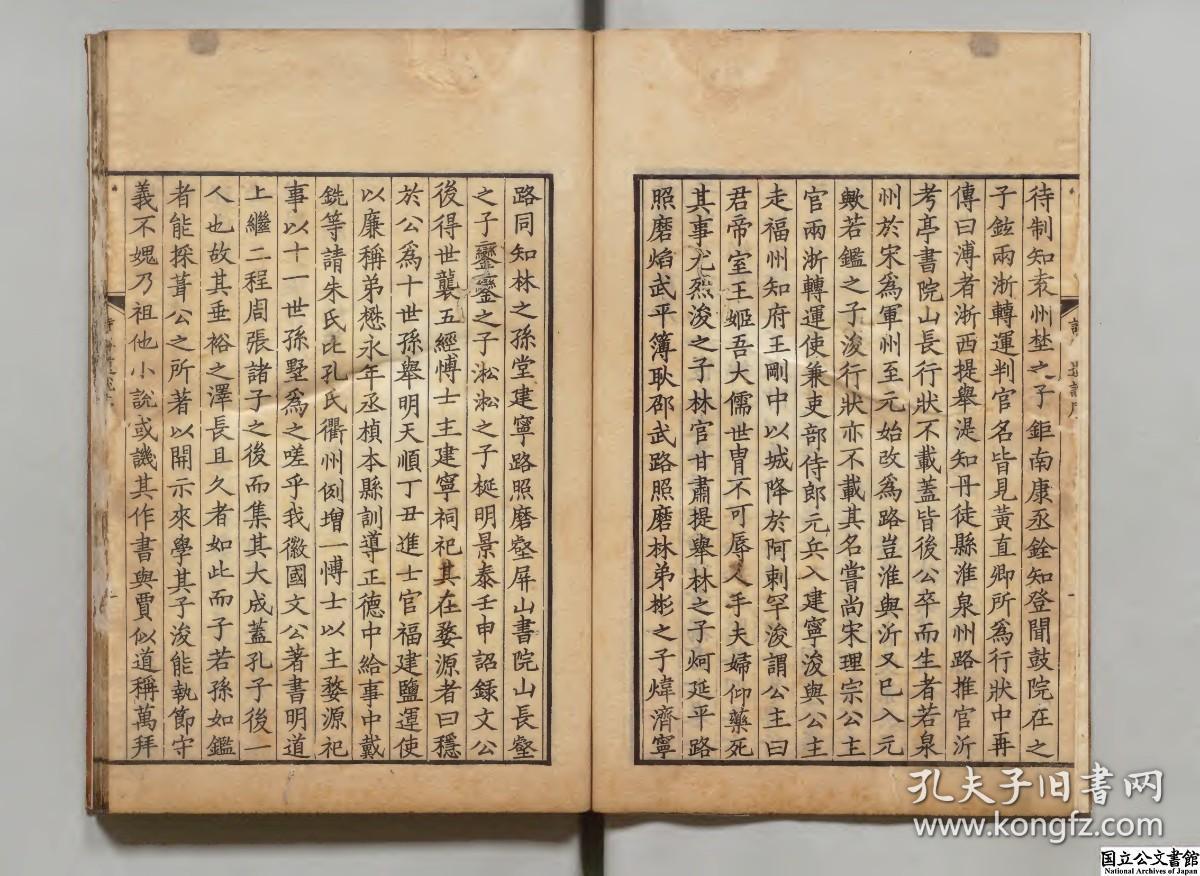 待制知袁州埜之子鉅南康丞銓知登聞鼓院在之
子鉉兩浙轉運判官名皆見黃直卿所爲行狀中再
傳曰溥者浙西提舉湜知丹徒縣淮泉州路推官沂
考亭書院山長行狀不載蓋皆後公卒而生者若泉
州於宋爲軍州至元始改爲路豈淮與沂又已入元
歟若鑑之子浚行狀亦不載其名嘗尚宋理宗公主
官兩浙轉運使兼吏部侍郎元兵入建寧浚與公主
走福州知府王剛中以城降於阿剌罕浚謂公主曰
君帝室王姬吾大儒世冑不可辱人手夫婦仰藥死
其事尤烈浚之子林官甘肅提舉林之子炣延平路
照磨焰武平簿耿邵武路照磨林弟彬之子煒濟寧
路同知林之孫堂建寧路照磨壑屏山書院山長壑
之子鑾鑾之子淞淞之子梴明景泰壬申詔錄文公
後得世襲五經博士主建寧祠祀其在婺源者曰穩
於公爲十世孫舉明天順丁丑進士官福建鹽運使
以廉稱弟懋永年丞楨本縣訓導正德中給事中戴
銑等請朱氏比孔氏衢州例增一博士以主婺源祀
事以十一世孫墅爲之嗟乎我徽國文公著書明道
上繼二程周張諸子之後而集其大成蓋孔子後一
人也故其垂裕之澤長且久者如此而子若孫如鑑
者能採葺公之所著以開示來學其子浚能執節守
義不媿乃祖他小說或譏其作書與賈似道稱萬拜
孔夫子旧书网
www.kongfz.com
国立公文書館
National Archives of Japan